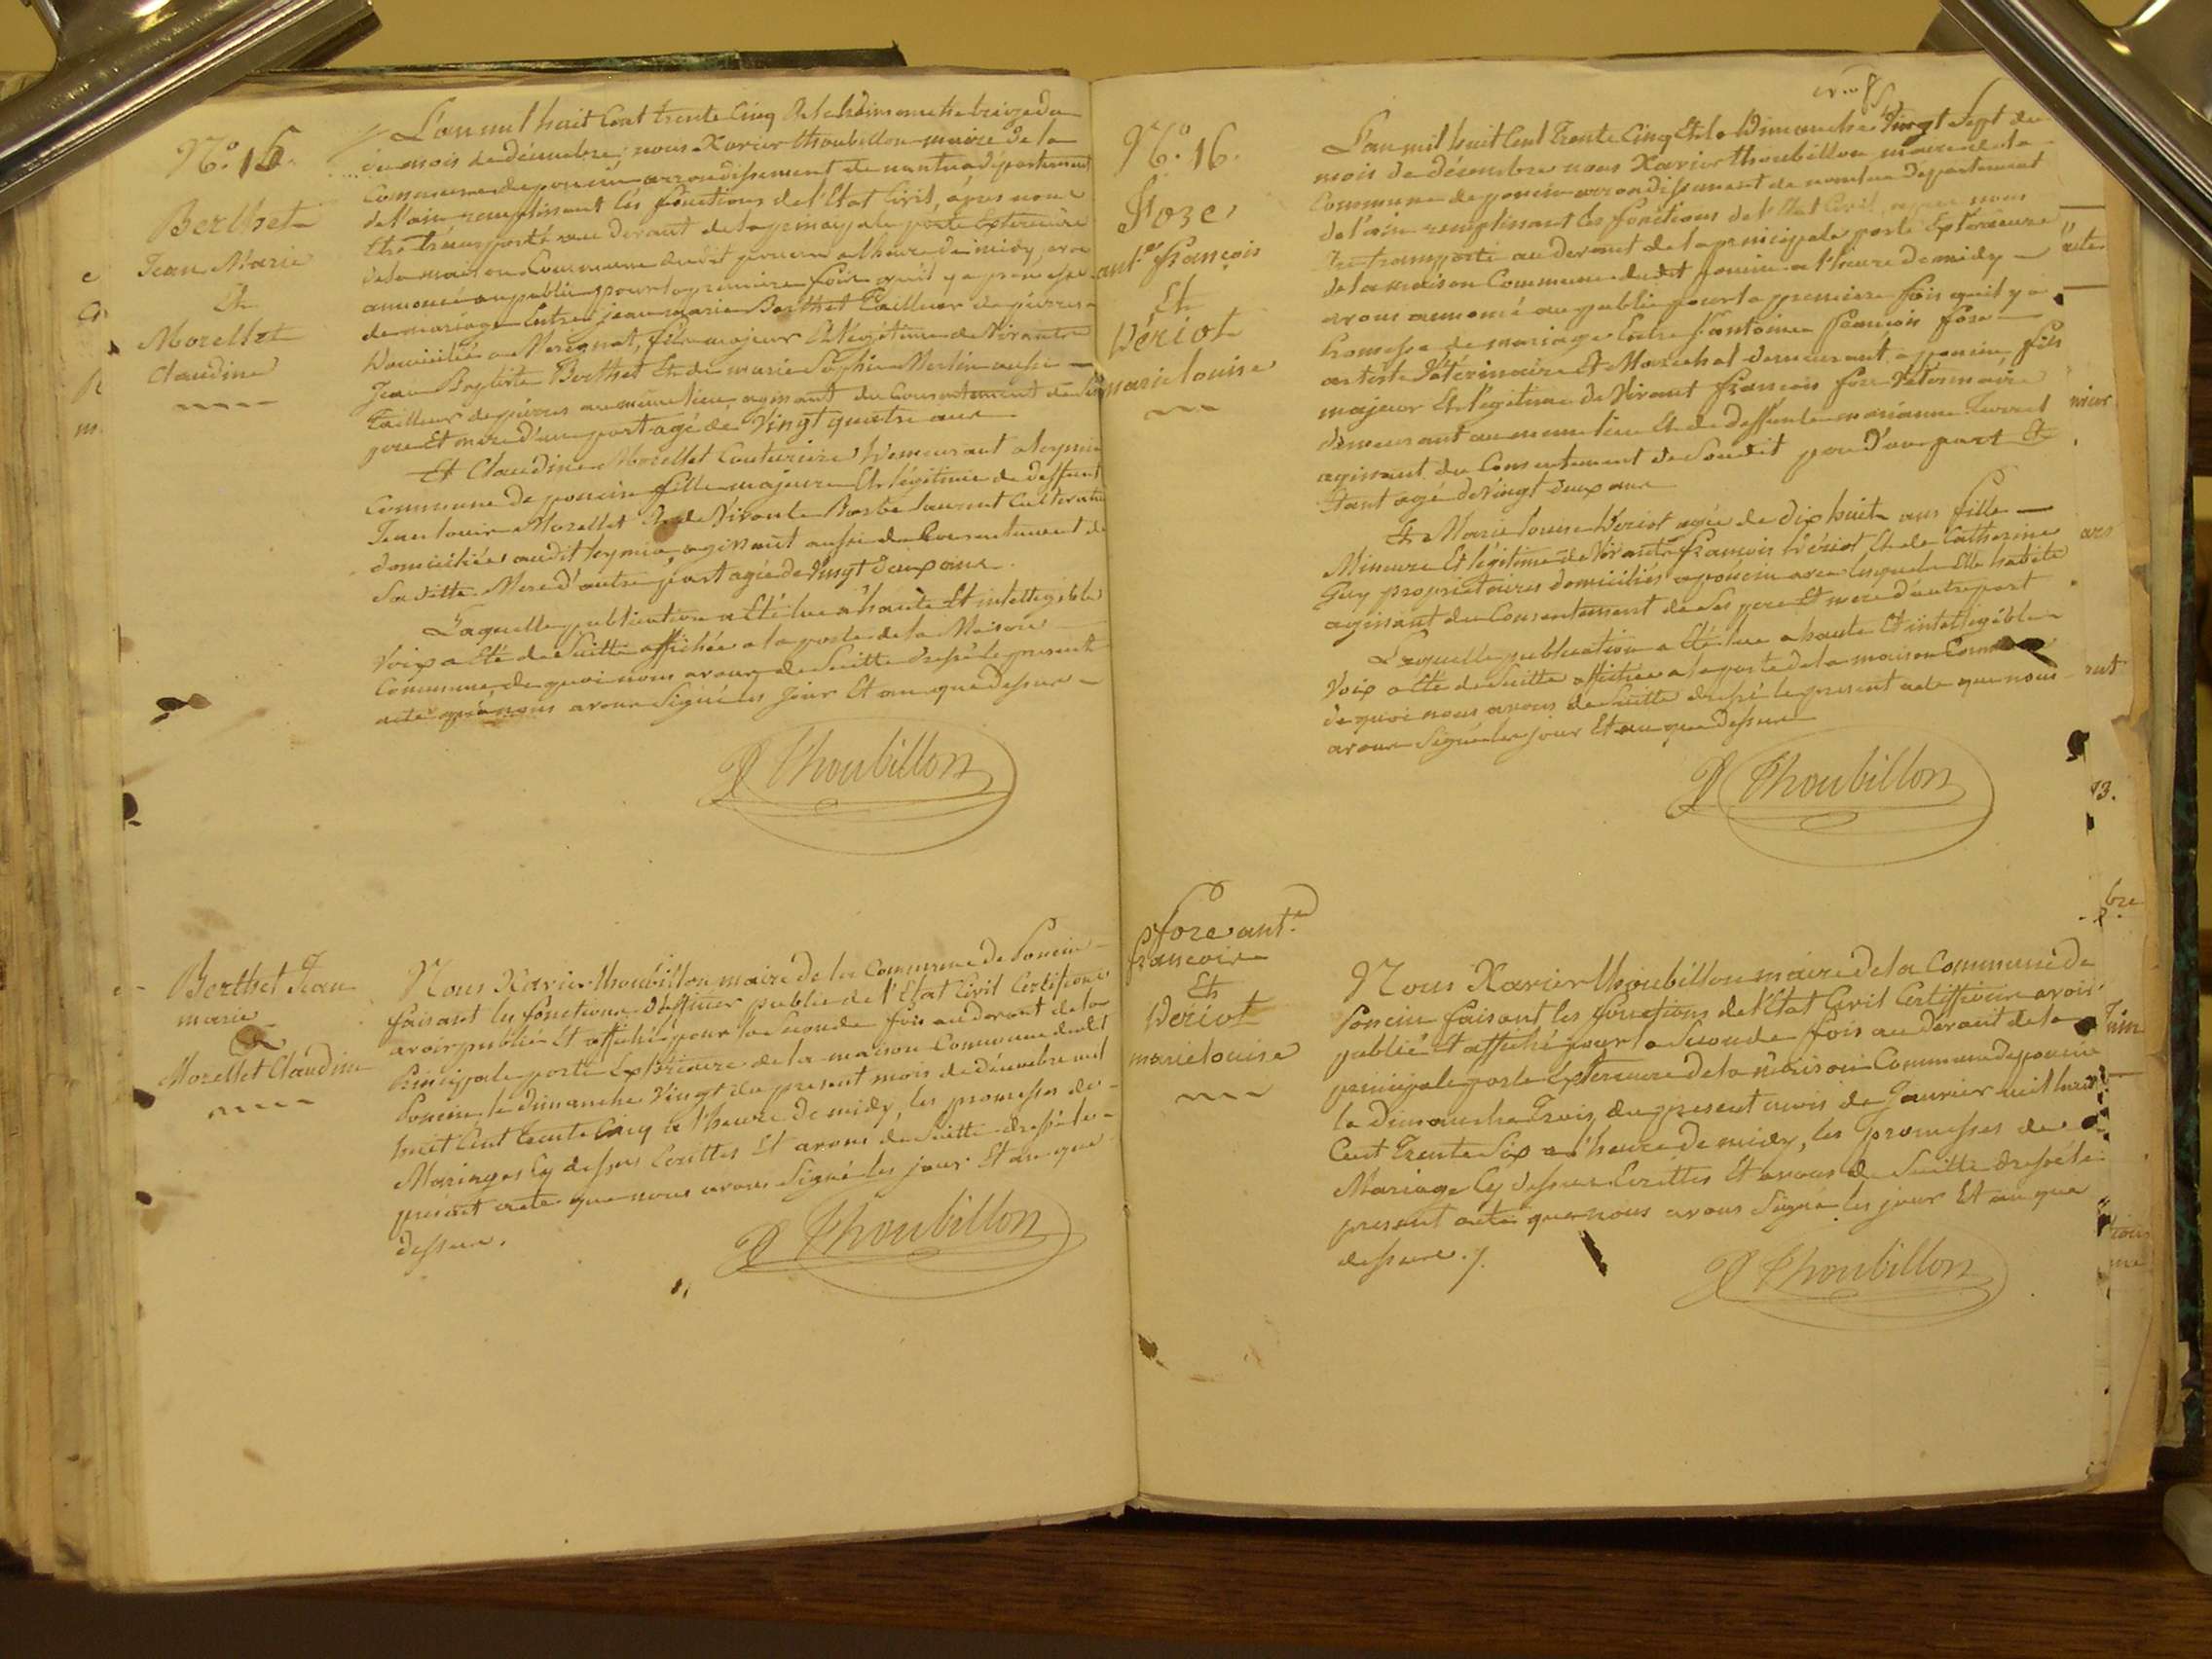 N.º 15.
Berthet
Jean Marie
Et
Morellet
Claudine
L'an mil huit Cent trente Cinq Et le dimanche treize du
du mois de décembre, nous Xavier thoubillon maire de la
Commune de poncin arrondissement de nantua département
de l'ain remplissant les fonctions de l'Etat Civil, après nous
Etre transporté au devant de la principale porte Exterieure
de la maison Commune dudit poncin a l'heure de midy, avons
annoncé au public pour la première fois qu'il y a promesse
de mariage Entre jean marie Berthet Tailleur de pierres
domicilié a Merignat, fils majeur Et légitime de Vivants
Jean Baptiste Berthet Et de marie Sophie Merlin aussi
Tailleur de pierres au même lieu, agissant du Consentement de Ses
pere Et mere d'une part agé de Vingt quatre ans
Et Claudine Morellet Couturière demeurant a leymia
Commune de poncin fille majeure Et légitime de deffunt
Jean louis Morellet Et de Vivante Barbe laurent Cultivateurs
domiciliée audit leymia agissant aussi du Consentement de
Sa ditte Mere d'autre part agée de Vingt deux ans.
Laquelle publication a Eté lue a haute Et intellegible
Voix a Eté de Suitte affichée a la porte de la Maison
Commune, de quoi nous avons de Suitte dressé le present
acte que nous avons Signé les Jour Et an que dessus
X Thoubillon
Berthet Jean
marie
Et
Morellet Claudine
Nous Xavier thoubillon maire de la Commune de Poncin
faisant les fonctions d'officier public de l'Etat Civil Certifions
avoir publié Et affiché pour la Seconde fois au devant de la
Principale porte Exterieure de la maison Commune dudit
Poncin, le dimanche Vingt du present mois de décembre mil
huit Cent Trente Cinq a l'heure de midy, les promesses de
Mariages Cy dessus Ecrittes Et avons de Suitte dressé le
présent acte que nous avons Signé les jour Et an que
dessus.
X Thoubillon
N.º 16.
Foze
ant.ne françois
Et
Vériot
marie louise
L'an mil huit Cent Trente Cinq Et le Dimanche Vingt Sept du
mois de décembre nous Xavier thoubillon maire de la
Commune de poncin arrondissement de nantua Département
de l'ain remplissant les fonctions de l'Etat Civil, apres nous
Etre transporté au devant de la principale porte Exterieure
de la maison Commune dudit poncin a l'heure de midy
avons annoncé au public pour la premiere fois qu'il y a
Promesse de mariage Entre S. antoine François foze
artiste Vétérinaire Et Marechal demeurant a poncin, fils
majeur Et légitime de Vivant françois foze Vétérinaire
demeurant au meme lieu Et de deffunte marianne
agissant du Consentement de Sondit pere d'une part Et
Etant agé de Vingt deux ans
Et Marie louise Vériot agée de dix huit ans fille
Mineure Et légitime de Vivants françois Vériot Et de Catherine
Guy propriétaires domiciliés a poncin avec lesquels Elle habite
agissant du Consentement de Ses pere Et mere d'autre part
Laquelle publication a Eté lue a haute Et intellegible
Voix a Eté de Suitte affichée a la porte de la maison
de quoi nous avons de Suitte dressé le present acte que nous
avons Signé les jour Et an que dessus
X Thoubillon
foze ant.ne
françois
Et
Vériot
marie louise
Nous Xavier thoubillon maire de la Commune de
Poncin faisant les fonctions de l'Etat Civil Certiffions avoir
publié Et affiché pour la Seconde fois au devant de la
principale porte Exterieure de la maison Commune de poncin
le Dimanche Trois du present mois de Janvier mil huit
Cent Trente Six a l'heure de midy, les promesses de
Mariage Cy dessus Ecrittes Et avons de Suitte dressé le
present acte que nous avons Signé les jour Et an que
dessus ./.
X Thoubillon